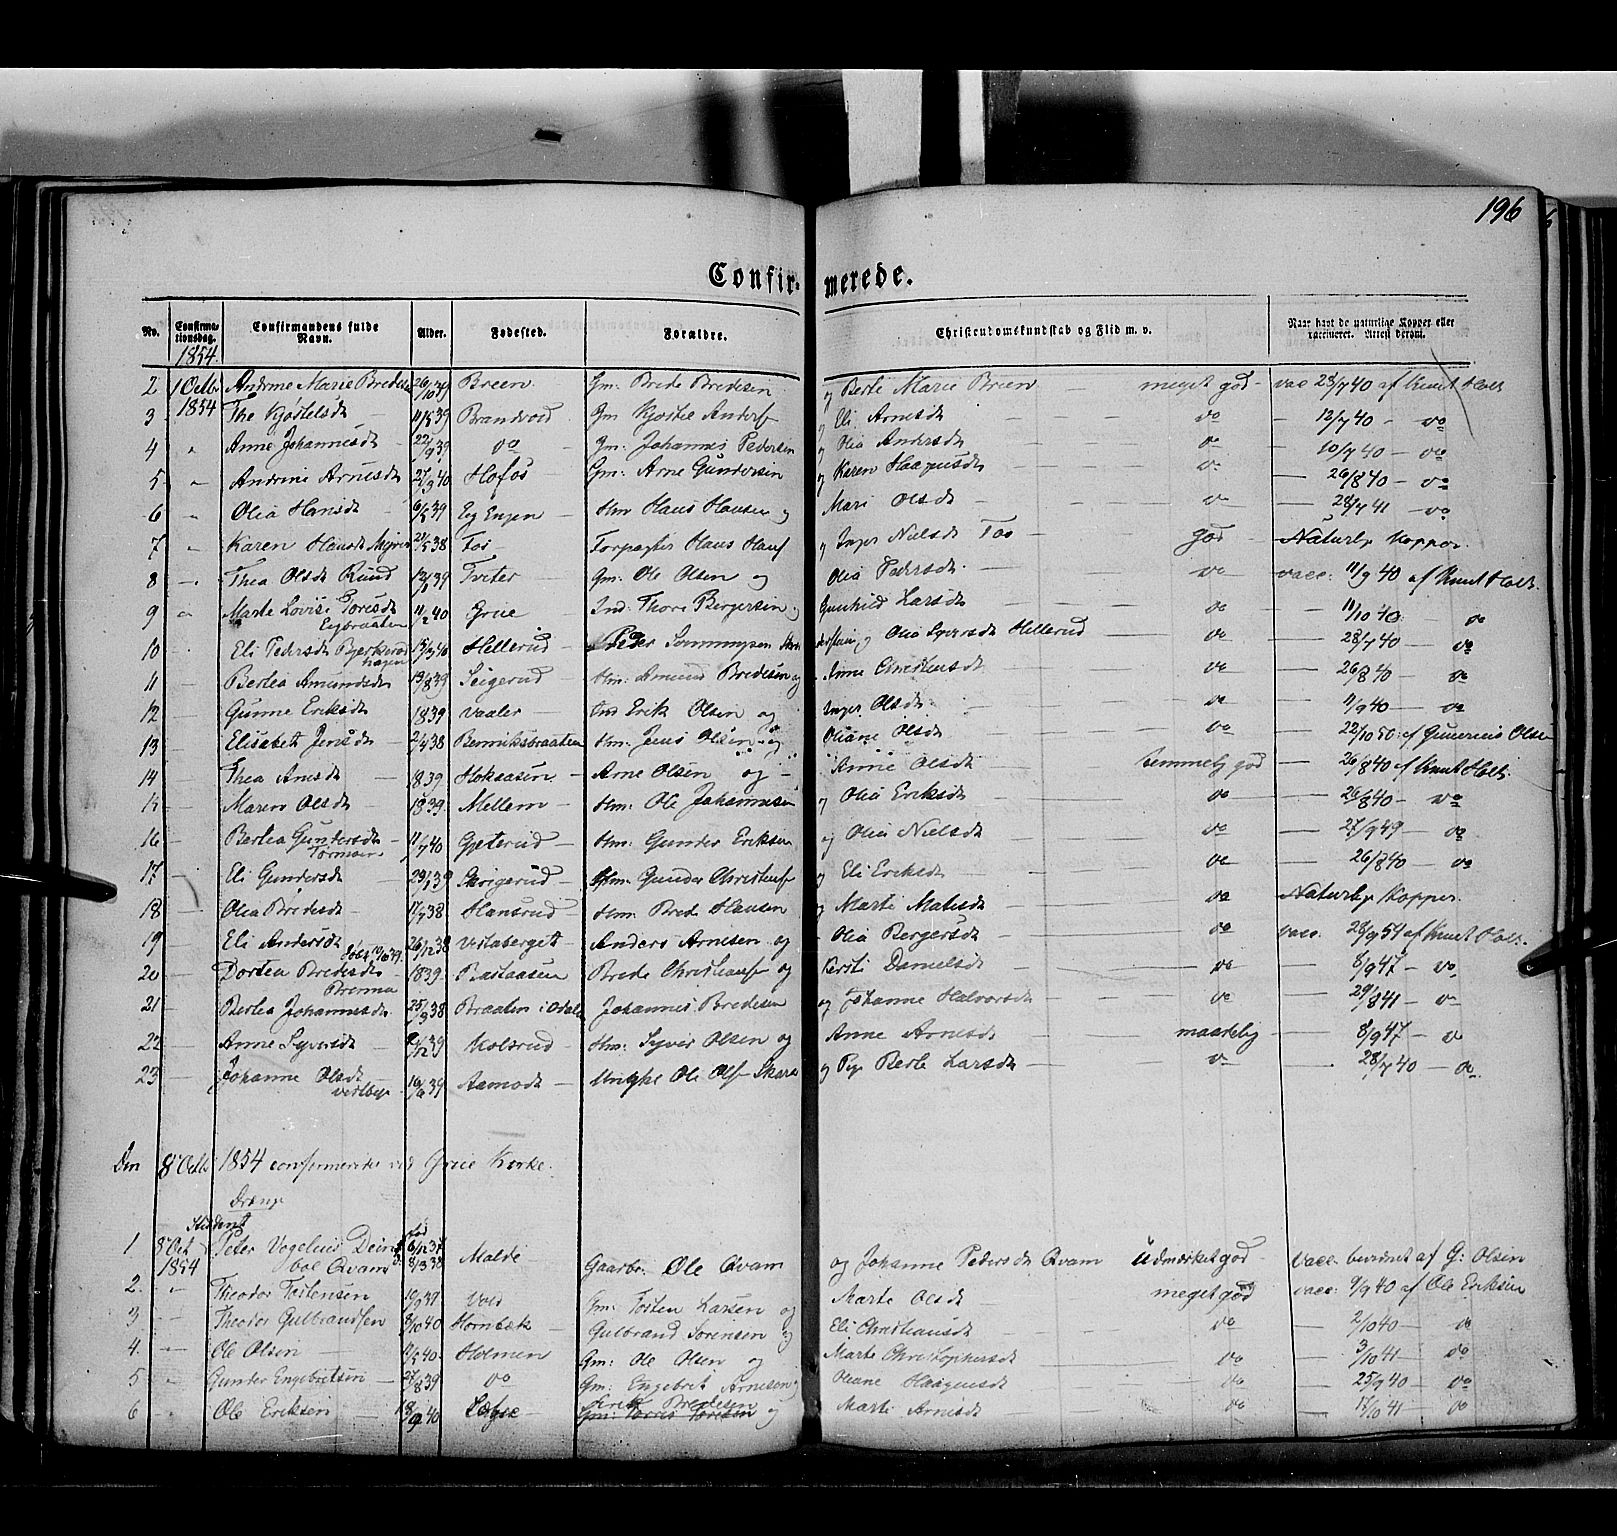 196
Confirmerede.
No. Confirmationsdag. Confirmandens fulde Navn. Alder. Fødested. Forældre. Christendomskundskab og Flid m. v. Naar havt de naturlige Kopper eller vaccineret. Attest derom.
1854.
2 1 Octbr 1854 Andrine Marie Bredesen 26/10 39 Breen Gm: Brede Bredesen og Berte Marie Breen — meget god — vac 23/7 40 af Knut Holt
3 Thea Kjøstelsdt 11/5 39 Brandvold Gm Kjøstel Andersf og Eli Arnesdt — do — 12/7 40 — do
4 " Anne Johannesdt 22/9 39 do Gm: Johannes Pedersen og Olia Andersdt — do — 10/7 40 — do
5 " Andrine Arnesdt 27/3 40 Hofos Gm: Arne Gundersen og Karen Haagensdt — do — 26/8 40 — do
6 " Olia Hansdt 6/5 39 Eg Engen Hm Hans Hansen og Mari Olsdt — do — 28/7 41 — do
7 " Karen Hansdt 21/5 38 Toe Forpagter Hans Hansf og Inger Nielsdt Toe — god — Naturlige Kopper.
8 — Thea Olsdt Rund 12/2 39 Tveter Gm: Ole Olsen og Olia Pedersdt — do — vacc: 11/9 40 af Knut Holt.
9 " Marte Lovise Toresdt Eegbraaten 11/2 40 Grue Ind: Thore Bergersen og Gunhild Larsdt — do — 11/10 40 do
10 . Eli Pedersdt Bjerkeroshagen 15/3 40 Hellerud Peder og Olia Syversdt Hellerud — do — 28/7 40 — do
11 — Bertea Amundsdt 13/8 39 Seigerud Hm: Amund Bredesen og Anne Christensdt — do — 26/8 40 — do
12 — Gunne Eriksdt 1839 Vaaler Ind Erik Olsen og Inger Olsdt — do — 11/9 40 — do
13 — Elisabet Jensdt 2/4 38 Henriksbraaten Hm: Jens Olsen og Oliane Olsdt — do — 22/10 50 af Gunerius Olsen
14 — Thea Arnesdt — 1839 Hoksaasen — Arne Olsen og — Anne Olsdt — temmelig god — 26/8 40 af Knut Holt.
15 — Maren Olsdt — 1839 Mellem — Hm: Ole Johannesen og Olia Eriksdt — do — 26/8 40 — do
16 — Bertea Gundersdt Tormoen 11/7 40 Gjeterud — Hm: Gunder Eriksen og Olia Nielsdt — do — 27/9 49 — do
17 — Eli Gundersdt 29/1 39 Skrigerud — Hm: Gunder Christensf og Eli Eriksdt — do — 26/8 40 — do
18 — Olia Bredesdt — 17/7 38 Hansrud — Hm: Brede Hansen og Marte Matisdt — do Naturlige Kopper.
19 — Eli Andersdt 26/12 38 Vestaberget Anders Arnesen og Olia Bergersdt — do vacc. 28/9 51 af Knut Holt.
20 — Dortea Bredesdt 1839 Bastaasen Brede Christiansf og Kersti Danielsdt — do — 8/9 47 — do
21 — Bertea Johannesdt 25/9 38 Braaten i Odalen Johannes Bredesen og Johanne Halvorsdt — do — 29/8 41 — do
22 — Anne Syversdt — 9/12 39 Kolsrud — Hm: Syver Olsen og Anne Arnesdt — maadelig — 8/9 47 — do
23 — Johanne Olsdt 16/6 39 Aamodt — Ungkr Ole Olsf Skara og Pige Berte Larsdt — do — 28/7 40 — do
Den 8de Octbr 1854 confirmerede ved Grue Kirke.
Drenge
Student
1 8 Oct 1854 Peter Vogelius Deinboe Qvam Malde Gaarbr: Ole Qvam og Johanne Pedersdt Qvam Udmærket god — vacc. bevidnet af G: Olsen
2. " Theodor Tostensen 10/9 39 Vold Gm: Tosten Larsen og Marte Olsdt — meget god — vacc: 9/9 40 af Ole Eriksen
3 — Theodor Gulbrandsen 8/10 40 Hornbæk — Gulbrand Sørensen og Eli Christiansdt — do — 2/10 40 — do
4. " Ole Olsen — 11/5 40. Holmen Gm: Ole Olsen og Marte Christophersdt — do — 3/10 41 — do
5 " Gunder Engebretsen — 27/8 39 do Gm: Engebret Arnesen og Oliane Haagensdt — do — 25/9 40 — do
6 " Ole Eriksen 18/9 40 Erik Bredesen og Marte Arnesdt — do — 17/10 41 — do